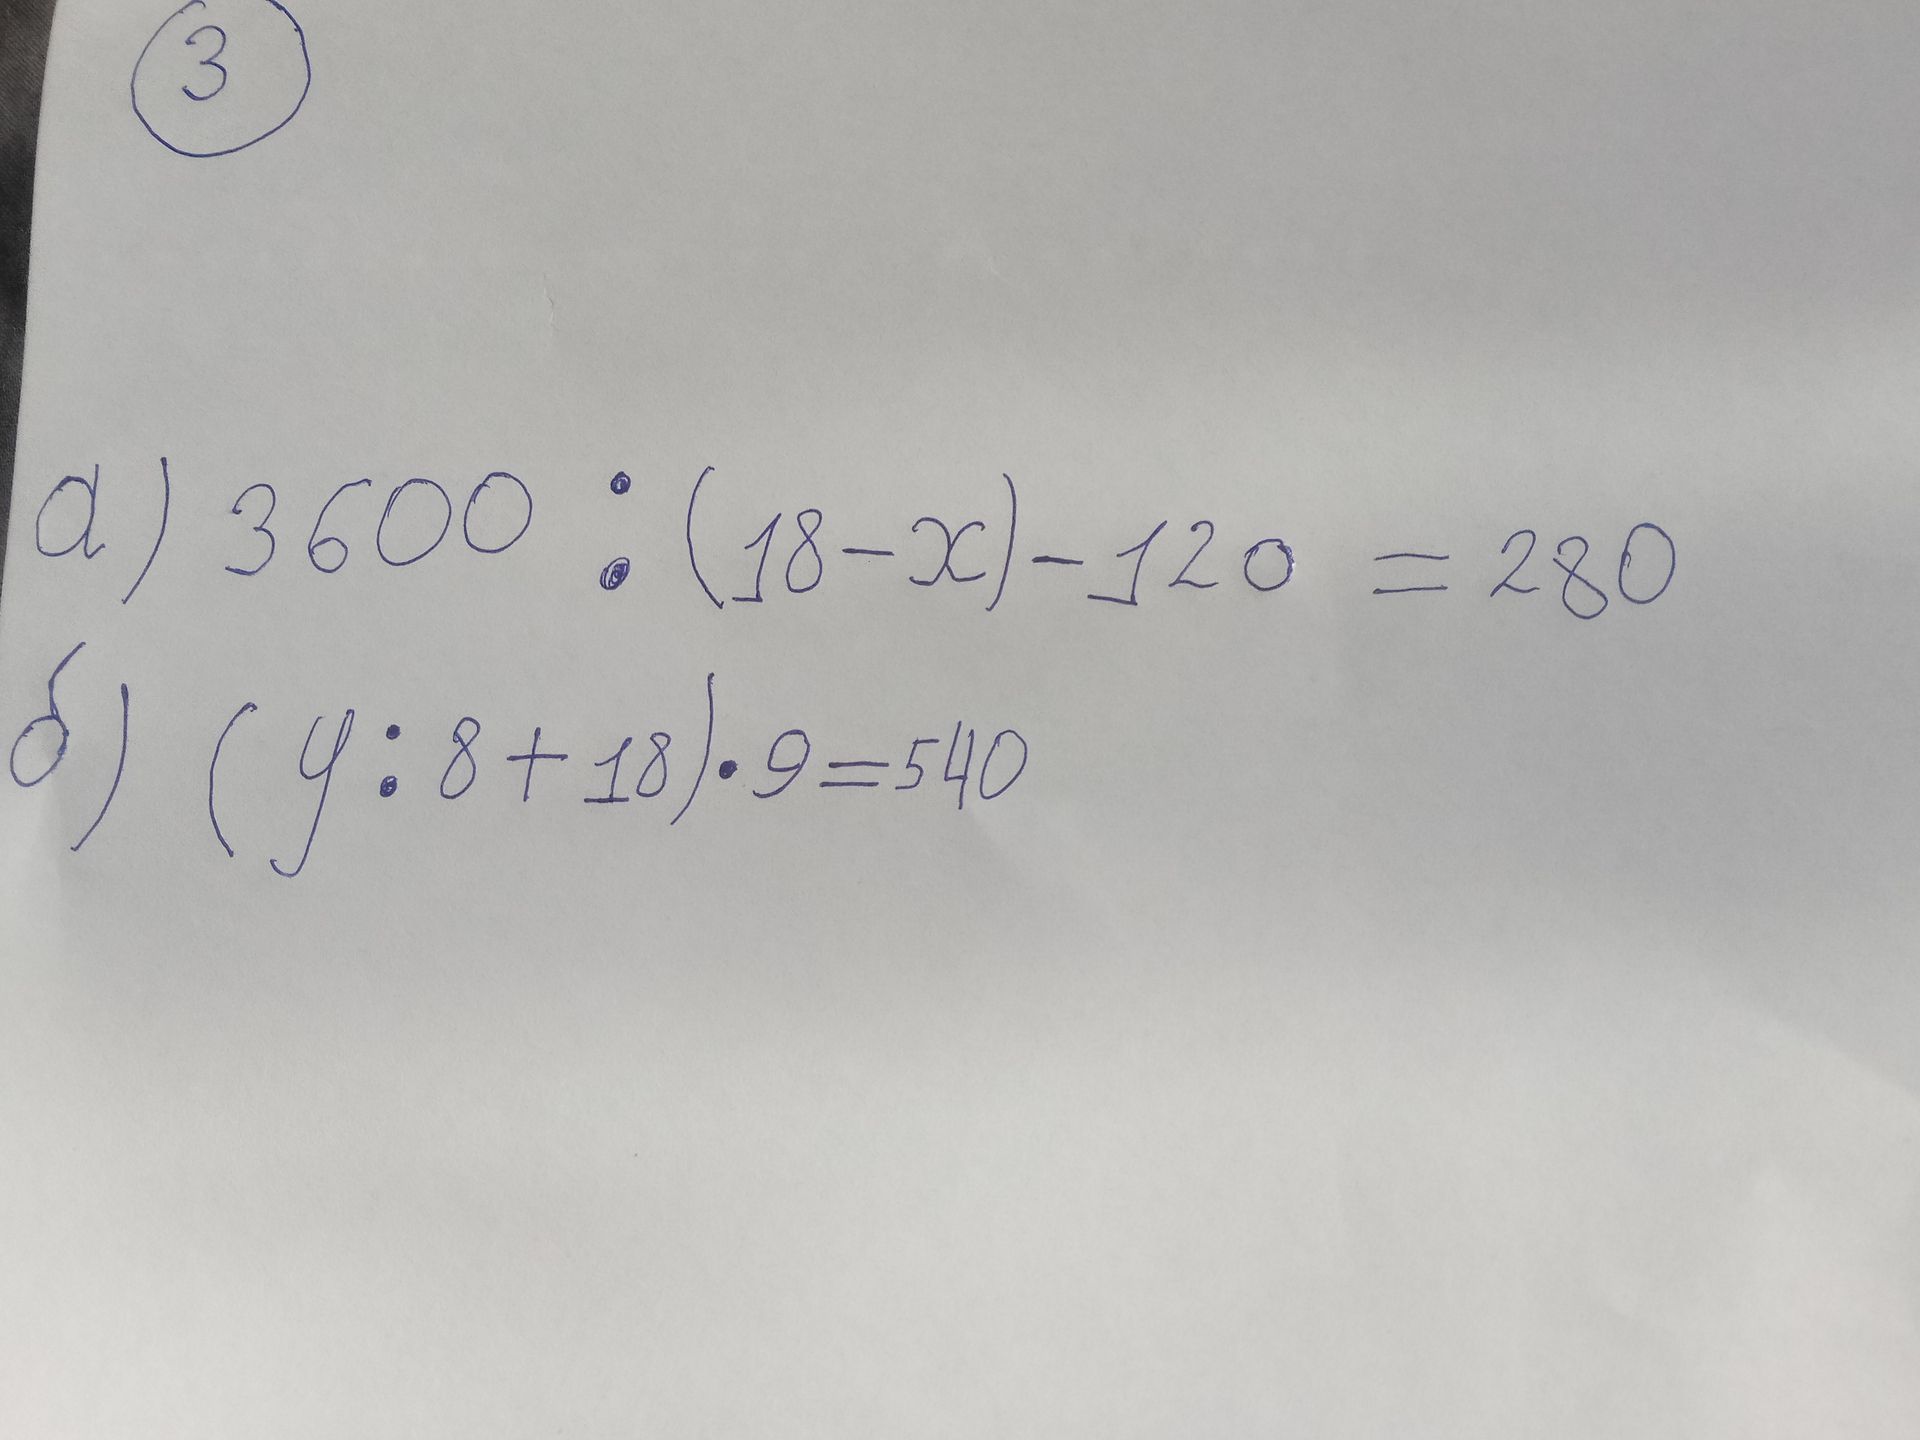 3
а) 3600 : (18 - x) - 120 = 280
б) (y : 8 + 18) · 9 = 540